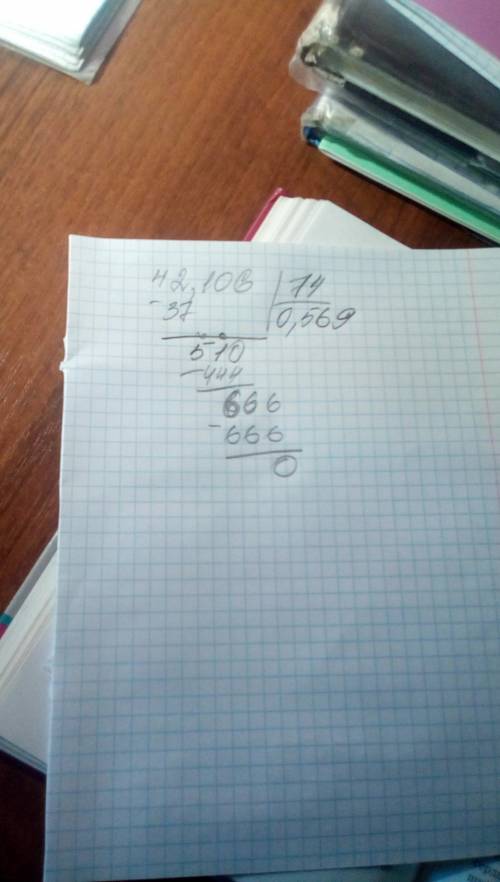 42,106 74
- 37 0,569
510
- 444
666
- 666
0